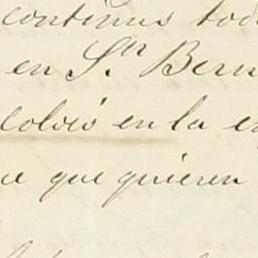 continus tod
en Sn Bern
colois en la e
e que quieren